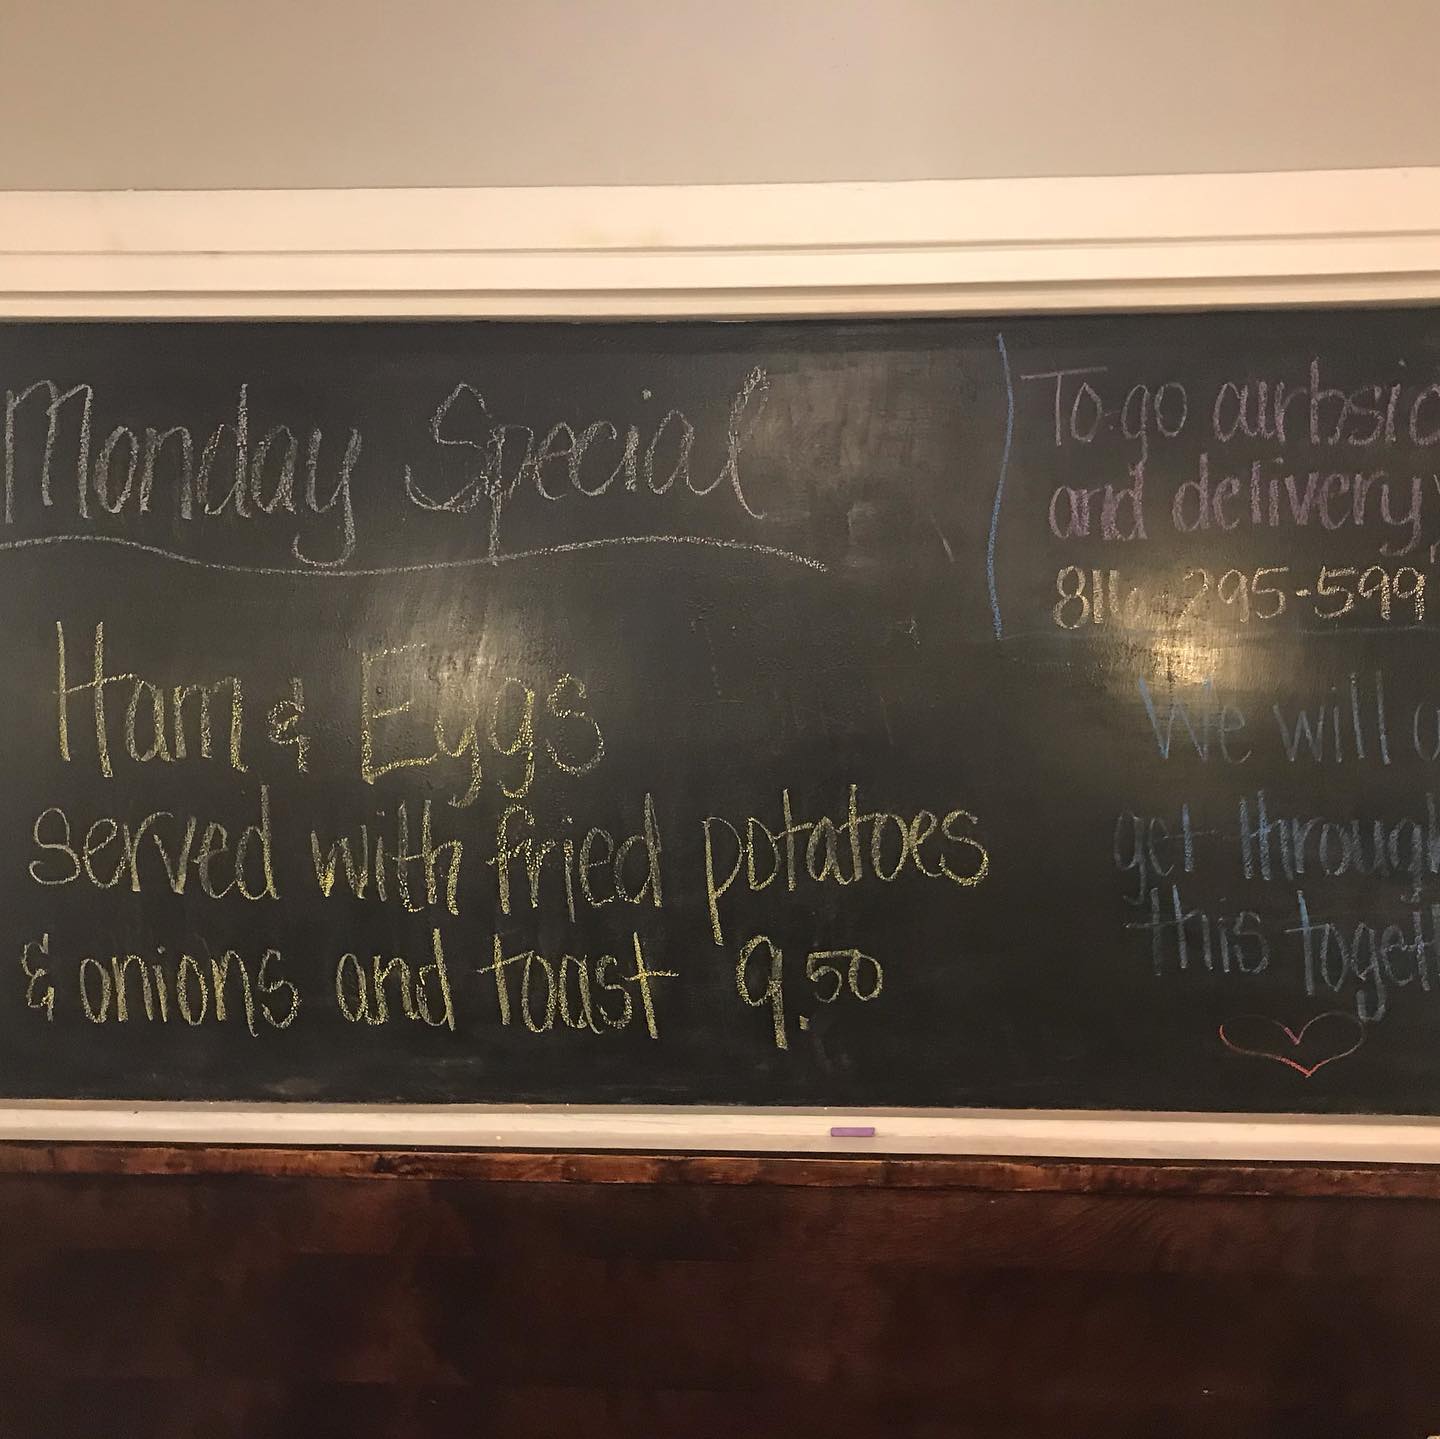 Monday Special
Ham & Eggs
served with fried potatoes
& onions and toast 9.50
To-go curbsid
and delivery
816-295-599
We will
get through
this togeth